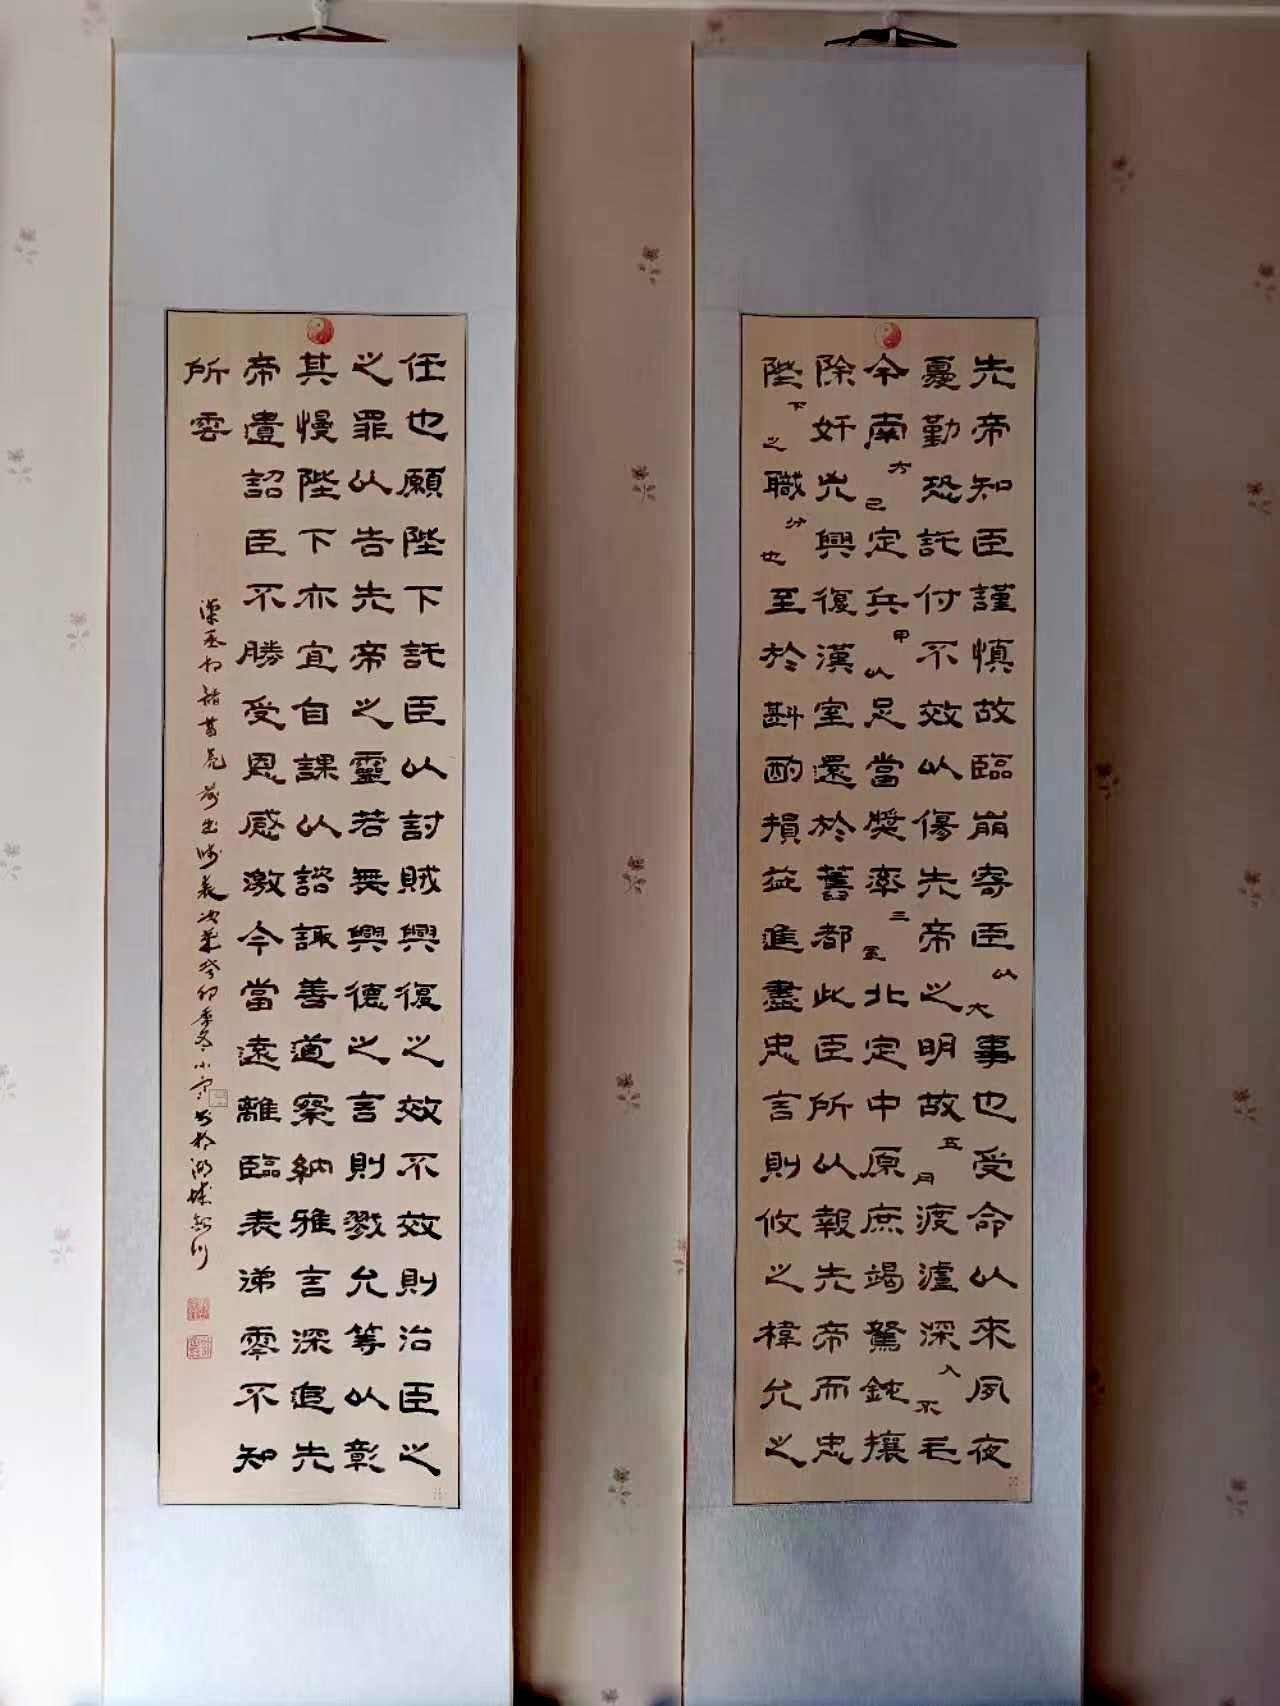 先帝知臣謹慎故臨崩寄臣以大事也受命以來夙夜
憂勤恐託付不效以傷先帝之明故五月渡瀘深入不毛
今南方已定兵甲以足當獎率三軍北定中原庶竭駑鈍攘
除奸凶興復漢室還於舊都此臣所以報先帝而忠
陛下之職分也至於斟酌損益進盡忠言則攸之禕允之
任也願陛下託臣以討賊興復之效不效則治臣之
之罪以告先帝之靈若無興德之言則戮允等以彰
其慢陛下亦宜自課以諮諏善道察納雅言深追先
帝遺詔臣不勝受恩感激今當遠離臨表涕零不知
所雲
漢丞相諸葛亮前出師表次葉癸卯季冬小寒書於湖城